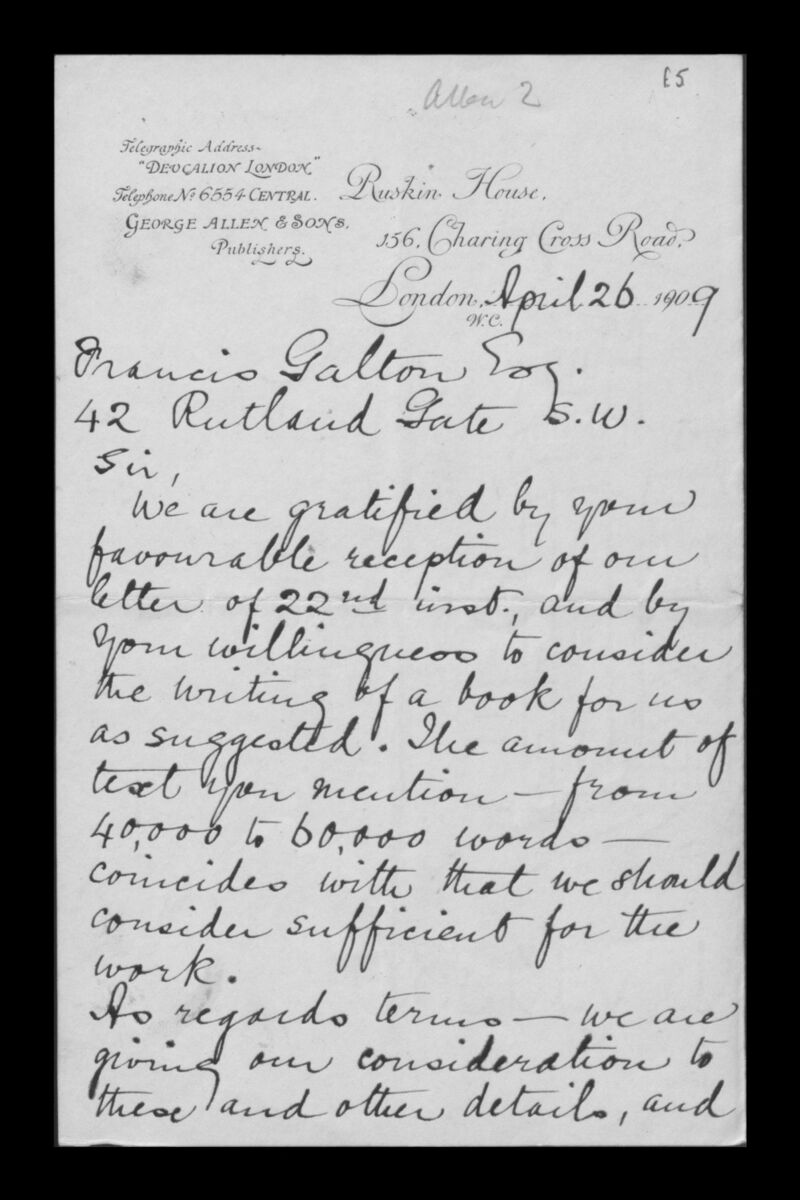 Allen 2
E5
Telegraphic Address~
"DEUCALION LONDON."
Telephone No 6554 CENTRAL.
GEORGE ALLEN & SONS.
Publishers.
Ruskin House,
156, Charing Cross Road,
London, April 26 1909
W.C.
Francis Galton Esq.
42 Rutland Gate S.W.
Sir,
We are gratified by your
favourable reception of our
letter of 22nd inst., and by
your willingness to consider
the writing of a book for us
as suggested. The amount of
text you mention — from
40,000 to 60,000 words —
coincides with that we should
consider sufficient for the
work.
As regards terms — we are
giving our consideration to
these and other details, and